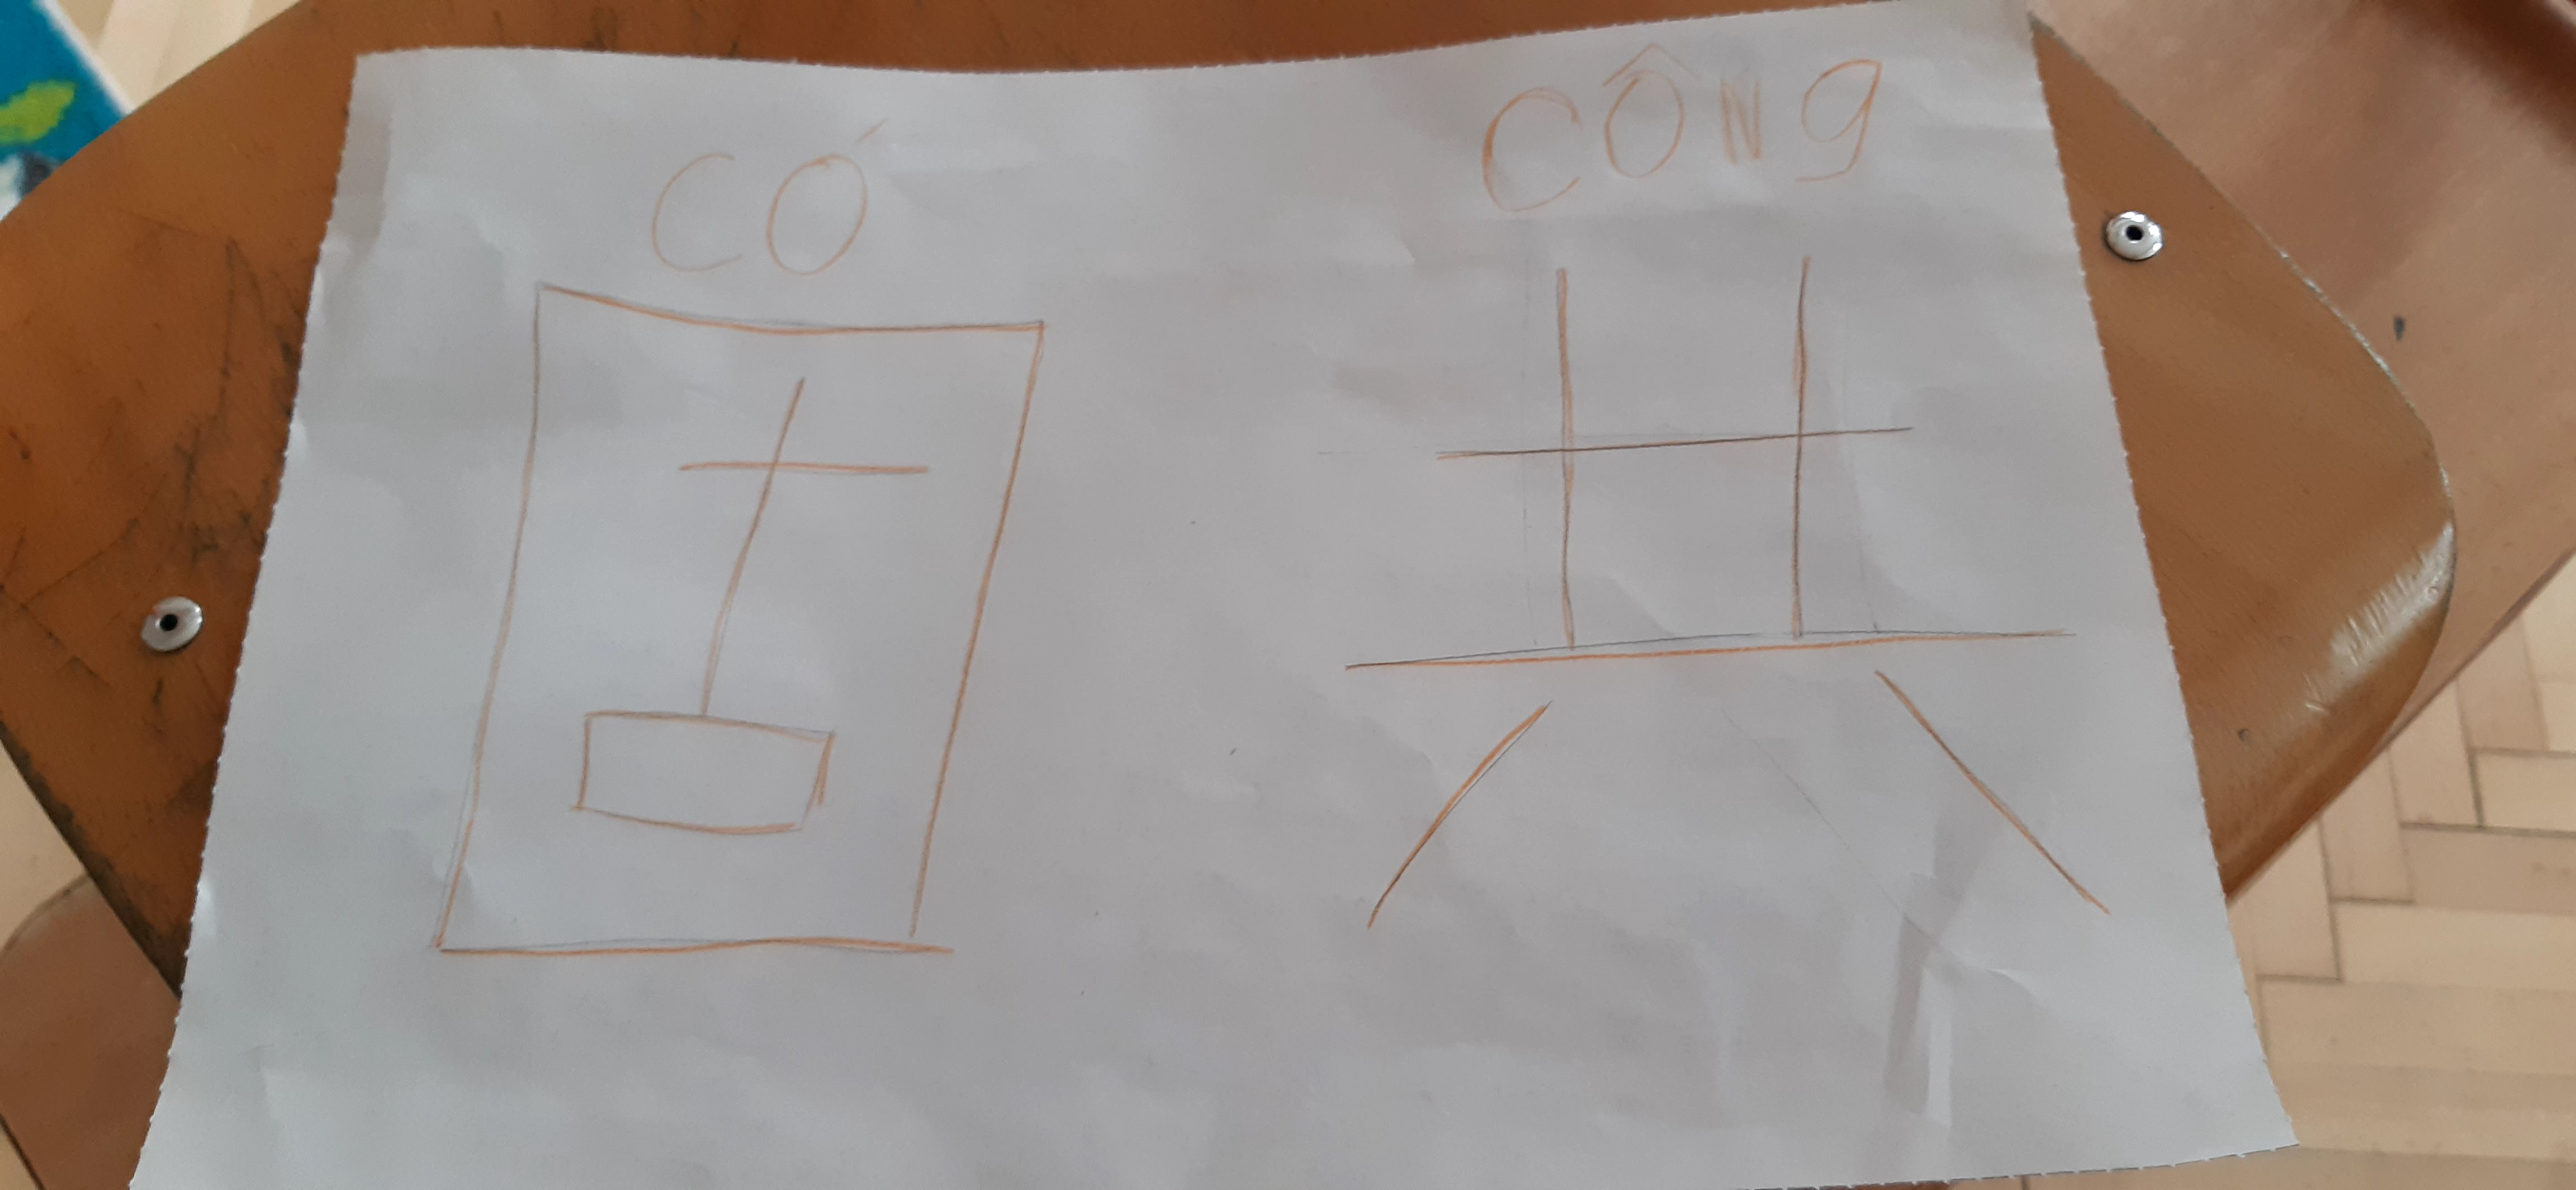 CÓ CÔNg
固 共